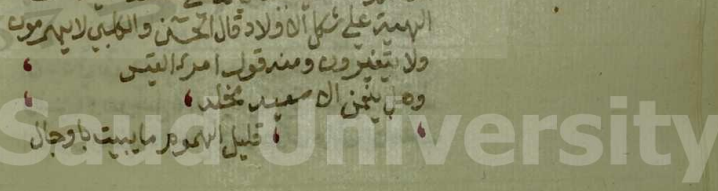 الهيئة على شكل الاولاد قال الحسن والكلبي لا يهرمون
ولا يتغيرون ومنه قول امرء القيس
وهل ينعمن الا سعيد مخلد
قليل الهموم ما يبيت باوجال
Saud University